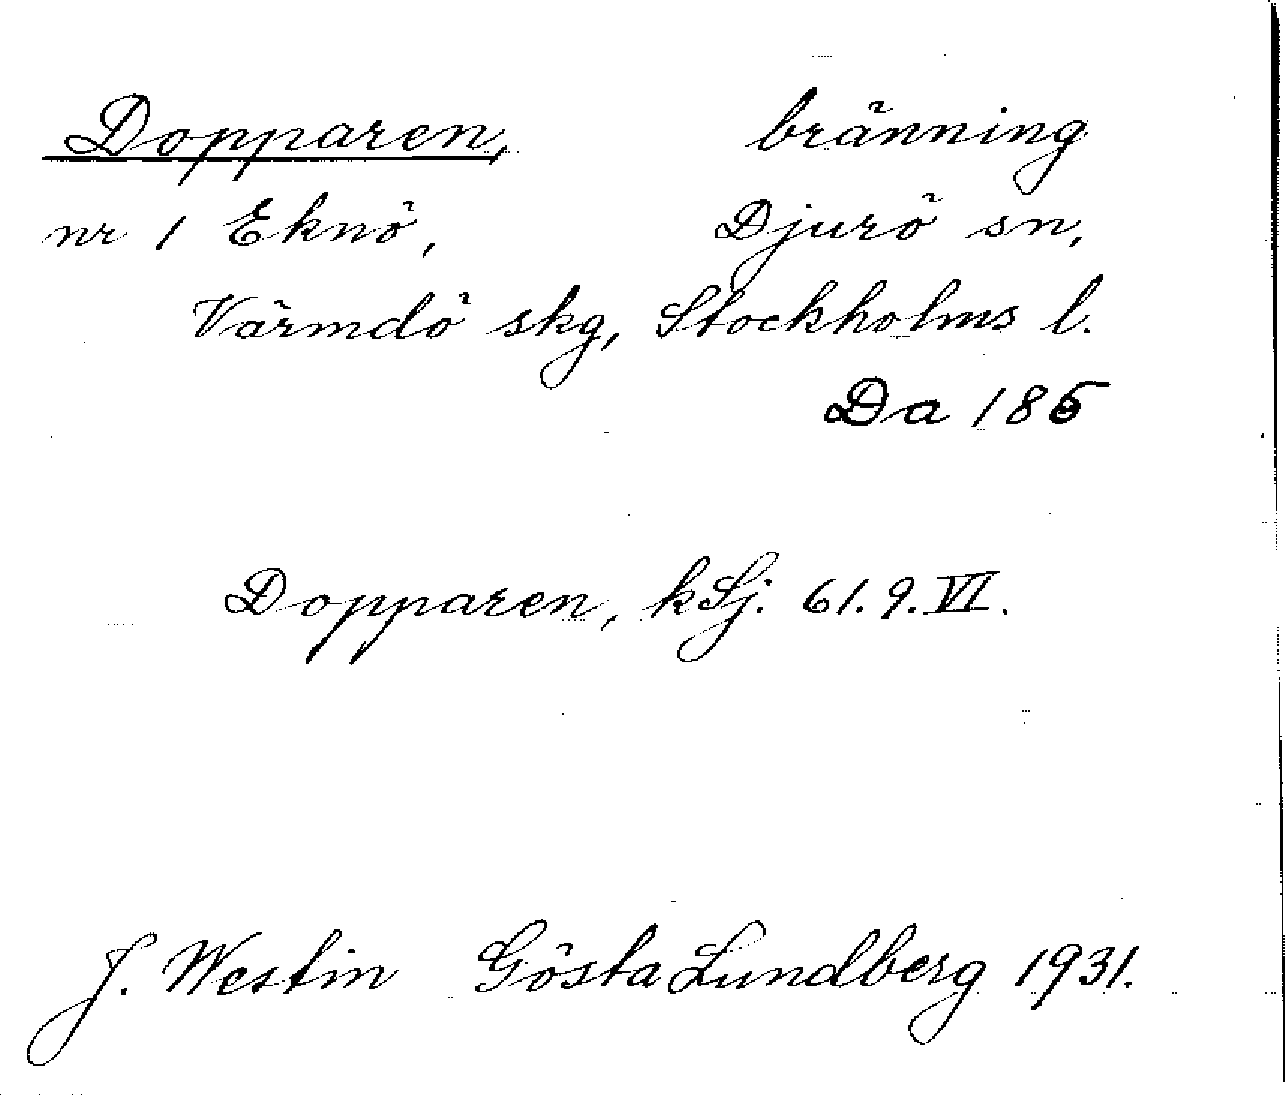 Dopparen, bränning
nr 1 Eknö, Djurö sn,
Värmdö skg, Stockholms l.
Da 185
Dopparen, k Sj. 61.9.VI.
J. Westin Gösta Lundberg 1931.